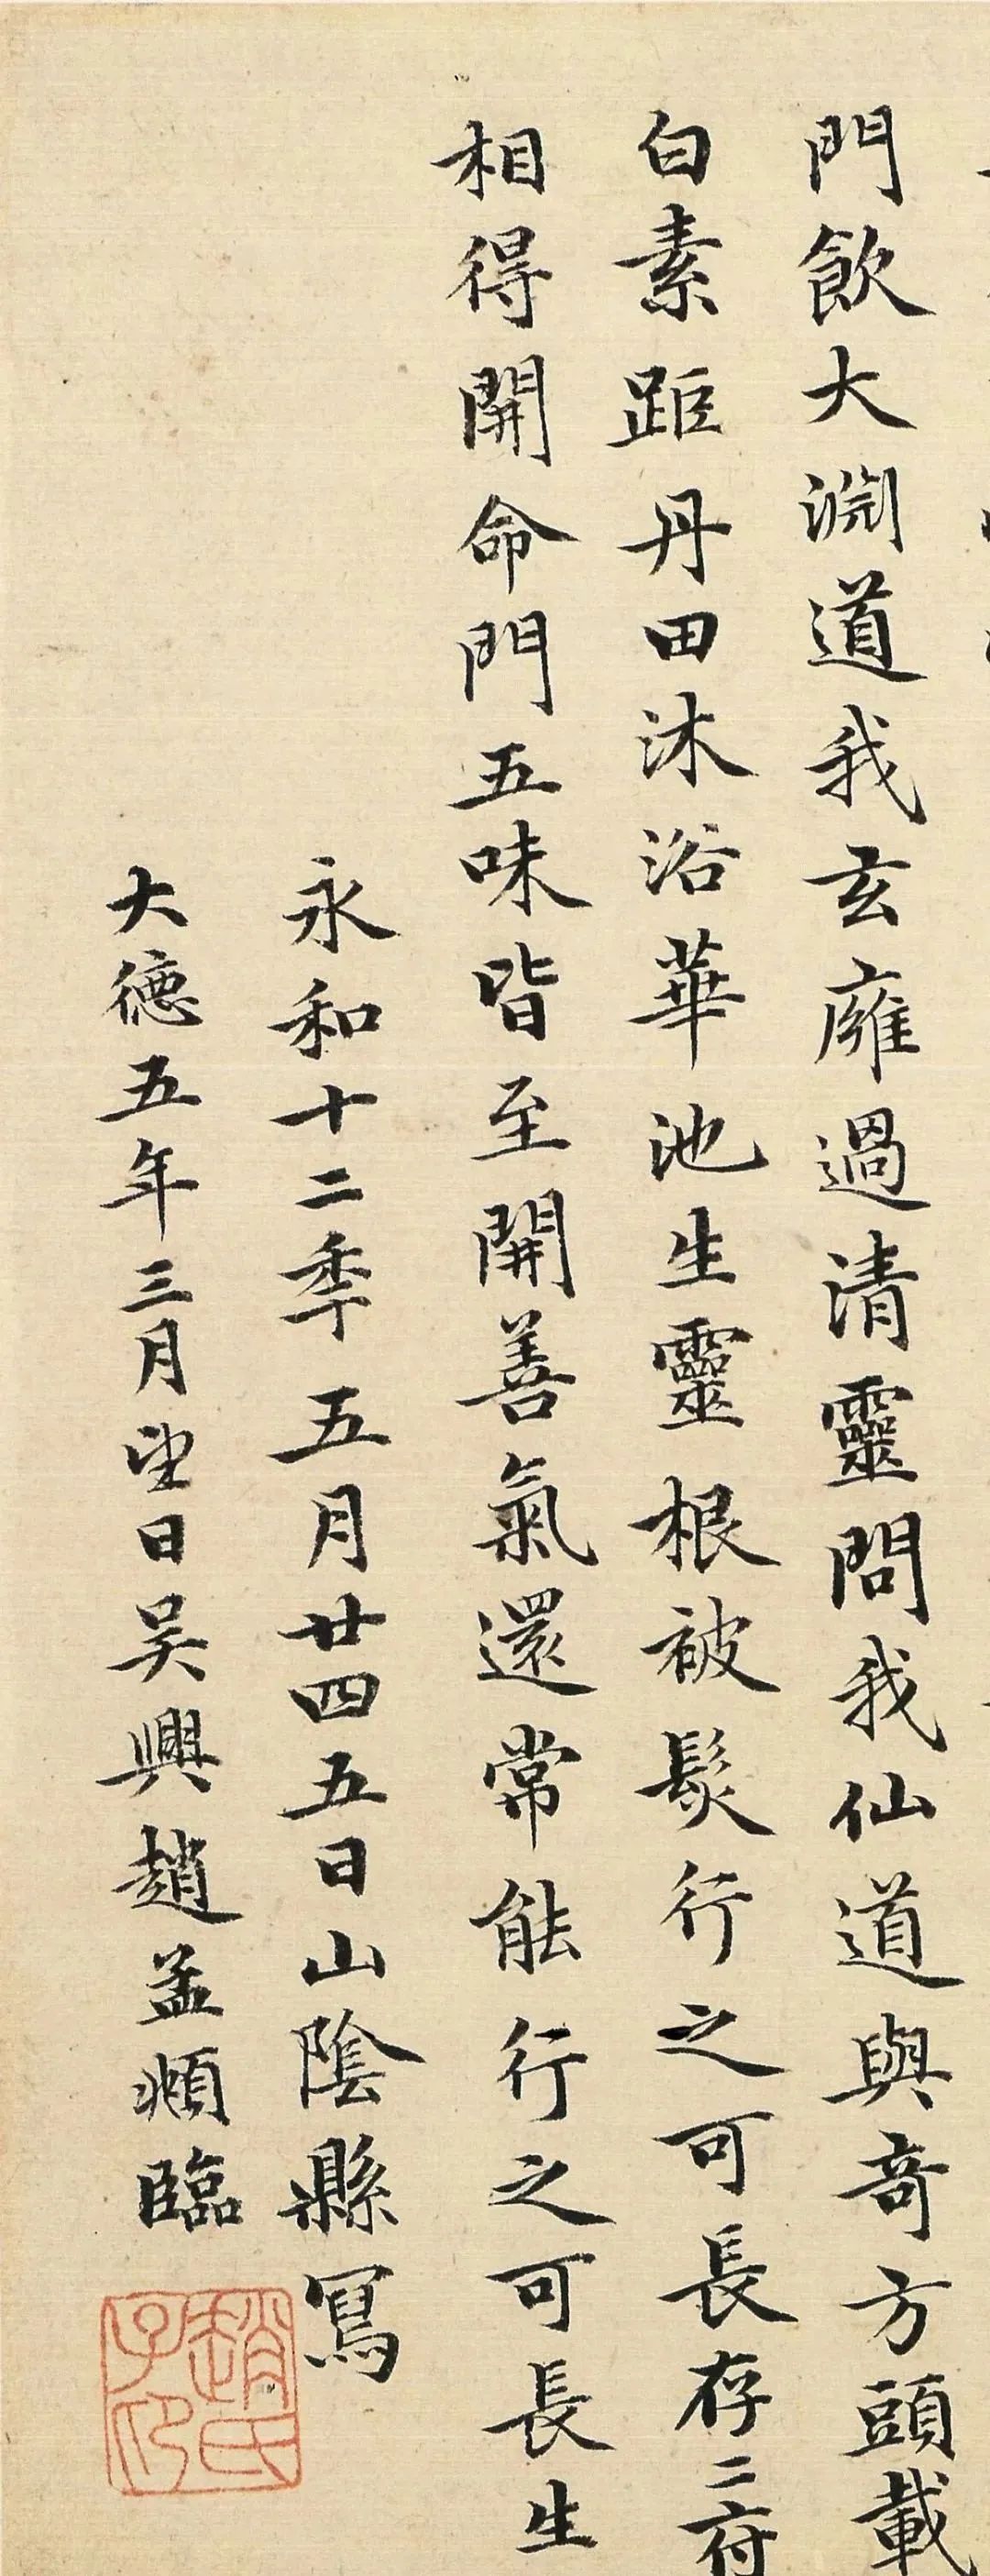 門飲大淵道我玄廱過清靈問我仙道與奇方頭載
白素距丹田沐浴華池生靈根被髮行之可長存二府
相得開命門五味皆至開善氣還常能行之可長生
永和十二秊五月廿四五日山陰縣寫
大德五年三月望日吳興趙孟頫臨
趙氏子印